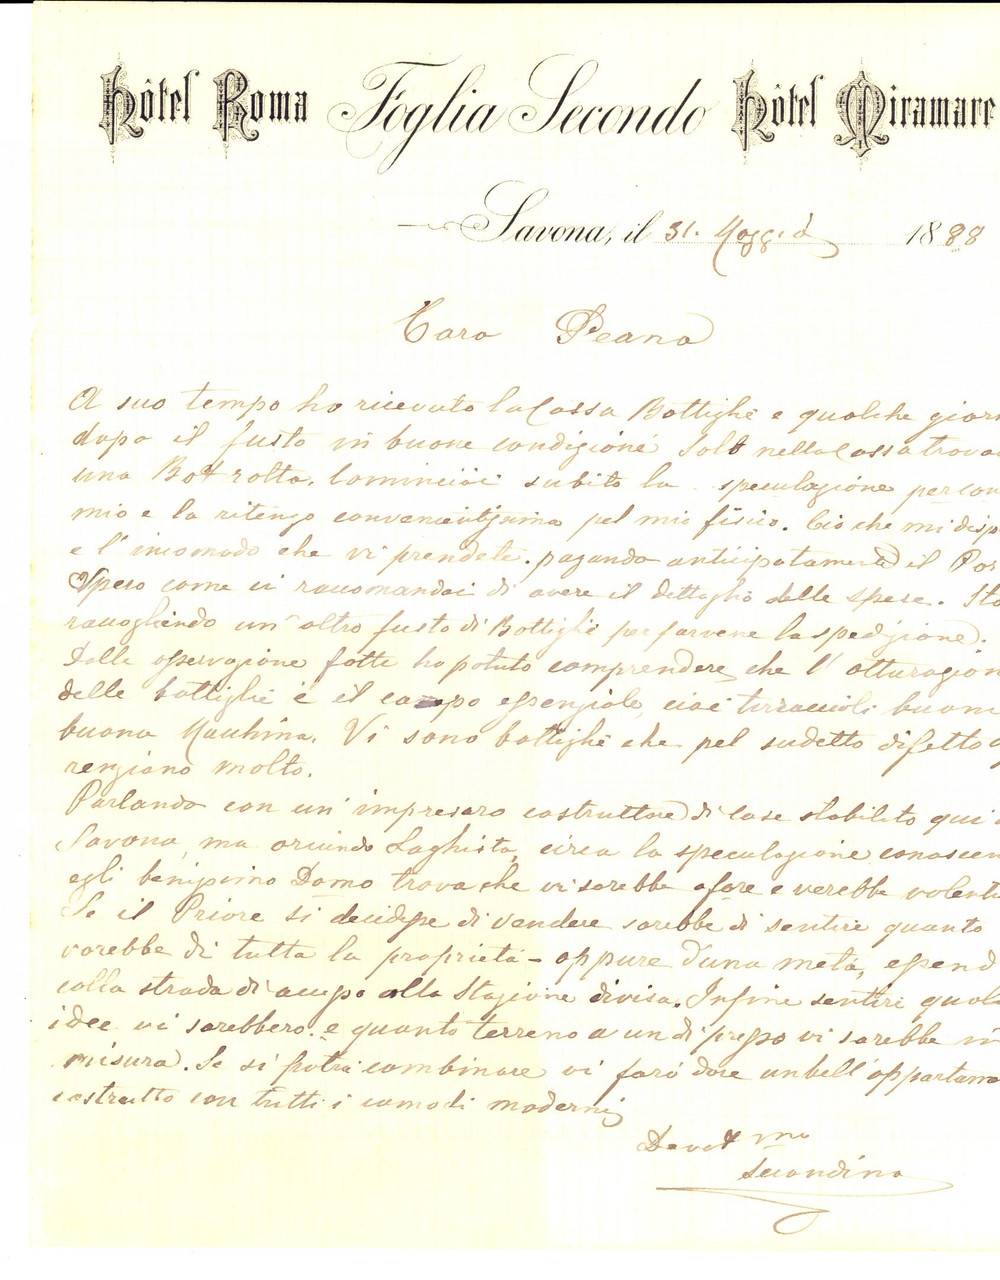 Hôtel Roma Foglia Secondo Hôtel Miramare
Savona, il 31. Maggio 1888
Caro Peano
A suo tempo ho ricevuto la Cassa Bottiglie e qualche gior
dopo il fusto in buone condizione Solo nella Cassa trovai
una Bott rotta. Cominciai subito la speculazione per con
mio e la ritengo convenientissima pel mio fisico. Ciò che mi disp
e l'incomodo che vi prendete. pagando anticipatamente il Por
Spero come vi raccomandai di avere il dettaglio delle spese. Sto
raccogliendo un'altro fusto di Bottiglie per farvene la spedizione.
Dalle osservazione fatte ho potuto comprendere che l'otturazion
delle bottiglie è il campo essenziale, cioè turaccioli buoni
buona Macchina. Vi sono bottiglie che pel sudetto difetto
renziano molto.
Parlando con un'impresaro costruttore di Case stabilito qui a
Savona, ma oriundo Laghista, circa la speculazione conoscen
egli benissimo Domo trova che vi sarebbe afare e verebbe volenti
Se il Priore si decidesse di vendere sarebbe di sentire quanto
vorebbe di tutta la proprietà - oppure d'una metà, essend
colla strada di acesso alla Stazione divisa. Infine sentire quali
idee vi sarebbero. e quanto terreno a un di presso vi sarebbe in
misura. Se si potrà combinare vi farò dare un bell'appartam
costrutto con tutti i comodi moderni
Devot mo
Secondino